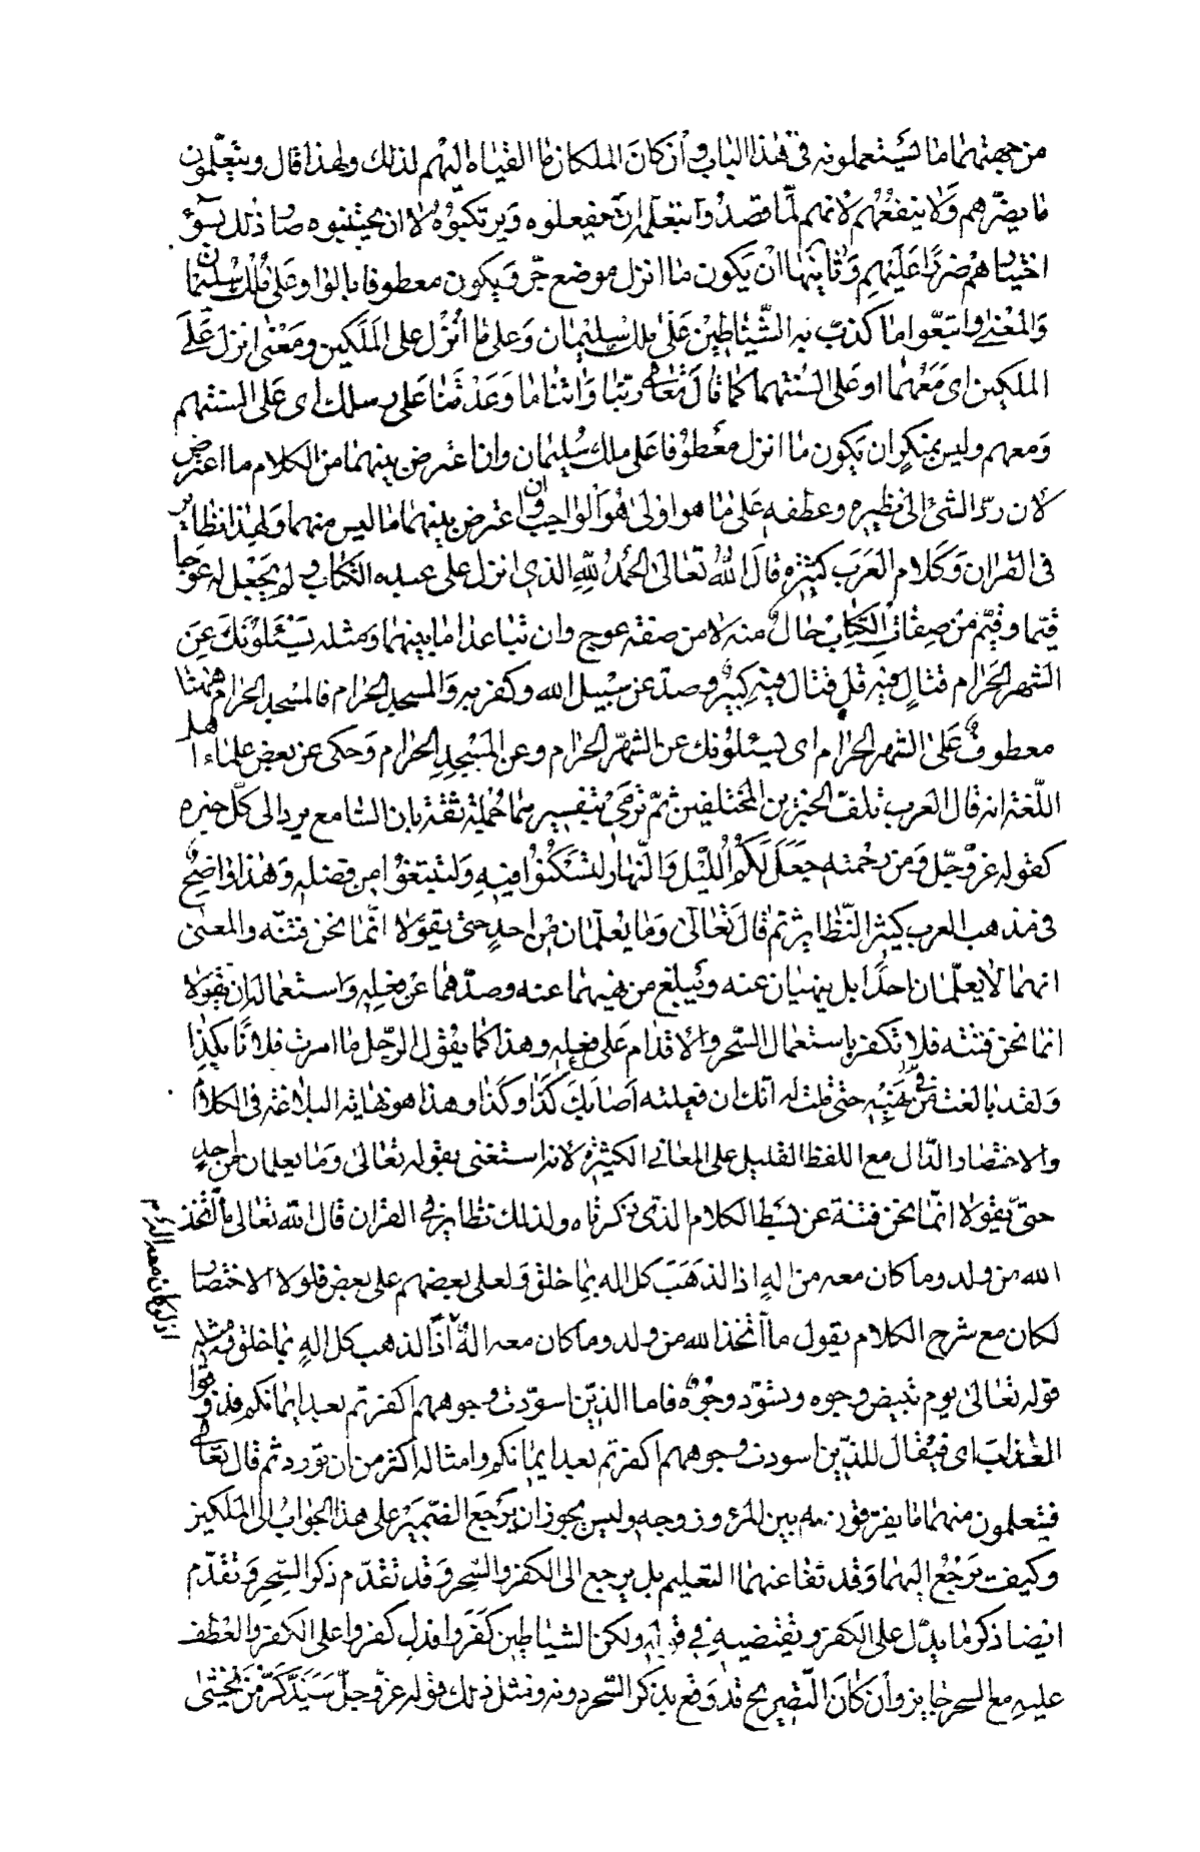 من جهتهما ما يستعملونه في هذا الباب وان كان الملكان ما القياه اليهم لذلك ولهذا قال ويتعلمون
ما يضرهم ولا ينفعهم لانهم لما قصدوا بتعلمه ان يفعلوه ويرتكبوه لا ان يجتنبوه صار ذلك بسوء
اختيارهم ضررا عليهم وثانيها ان يكون ما انزل موضع جر ويكون معطوفا بالواو على ملك سليمان
والمعنى واتبعوا ما كذب به الشياطين على ملك سليمان وعلى ما أنزل على الملكين ومعنى انزل على
الملكين اى معهما او على السنتهما كما قال تعالى ربنا واتنا ما وعدتنا على رسلك اى على السنتهم
ومعهم وليس بمنكر ان يكون ما انزل معطوفا على ملك سليمان وان اعترض بينهما من الكلام ما اعترض
لان رد الشئ الى نظيره وعطفه على ما هو اولى هو الواجب وان اعترض بينهما ما ليس منهما ولهذا نظاير
في القران وكلام العرب كثيرة قال الله تعالى الحمد لله الذي انزل على عبده الكتاب ولم يجعل له عوجا
قيما وقيم من صفات الكتاب حال منه لا من صفة عوج وان تباعد ما بينهما ومثله يسئلونك عن
الشهر الحرام قتال فيه قل قتال فيه كبير وصد عن سبيل الله وكفر به والمسجد الحرام فالمسجد الحرام ههنا
معطوف على الشهر الحرام اى يسئلونك عن الشهر الحرام وعن المسجد الحرام وحكى عن بعض علماء اهل
اللغة انه قال العرب تلف الخبرين المختلفين ثم ترمي بتفسيرهما جملة ثقة بان السامع يرد الى كل خبره
كقوله عز وجل ومن رحمته جعل لكم الليل والنهار لتسكنوا فيه ولتبتغوا من فضله وهذا واضح
في مذهب العرب كثير النظاير ثم قال تعالى وما يعلمان من احد حتى يقولا انما نحن فتنة والمعنى
انهما لا يعلمان احدا بل ينهيان عنه ويبلغ من نهيهما عنه وصدهما عن فعله واستعماله ان يقولا
انما نحن فتنة فلا تكفر باستعمال السحر والاقدام على فعله وهذا كما يقول الرجل ما امرت فلانا بكذا
ولقد بالغت في نهيه حتى قلت له انك ان فعلته اصابك كذا وكذا وهذا هو نهاية البلاغة في الكلام
والاختصار الدال مع اللفظ القليل على المعاني الكثيرة لانه استغنى بقوله تعالى وما يعلمان من احد
حتى يقولا انما نحن فتنة عن بسط الكلام الذي ذكرناه ولذلك نظاير في القران قال الله تعالى ما اتخذ
الله من ولد وما كان معه من اله اذا لذهب كل اله بما خلق ولعلى بعضهم على بعض فلولا الاختصار
لكان مع شرح الكلام يقول ما اتخذ الله من ولد وما كان معه اله اذا لذهب كل اله بما خلق ومثله
قوله تعالى يوم تبيض وجوه وتسود وجوه فاما الذين اسودت وجوههم اكفرتم بعد ايمانكم فذوقوا
العذاب اى فيقال للذين اسودت وجوههم اكفرتم بعد ايمانكم وامثاله اكثر من ان تورد ثم قال تعالى
فيتعلمون منهما ما يفرقون به بين المرء وزوجه وليس يجوز ان يرجع الضمير على هذا الجواب الى الملكين
وكيف يرجع اليهما وقد نفا عنهما التعليم بل يرجع الى الكفر والسحر وقد تقدم ذكر السحر وتقدم
ايضا ذكر ما يدل على الكفر ويقتضيه في قوله ولكن الشياطين كفروا فدل كفروا على الكفر والعطف
عليه مع السحر جايز وان كان التصريح قد وقع بذكر السحر دونه ومثل ذلك قوله عز وجل سيذكر من يخشى
ولو كان معه اله
اذا